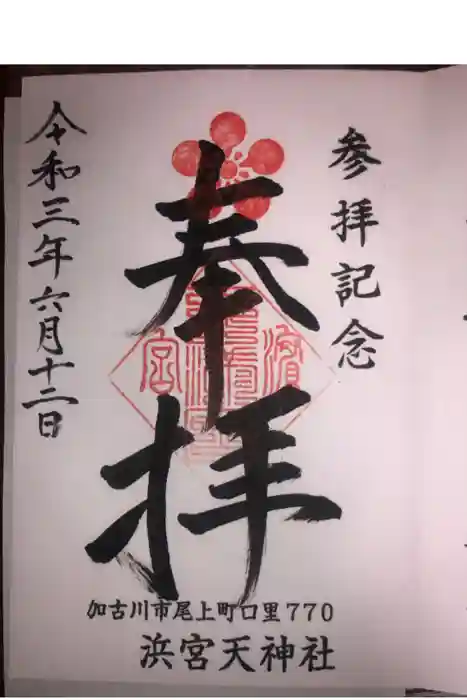 参拝記念
奉拝
濱
宮
令和三年六月十二日
加古川市尾上町口里770
浜宮天神社